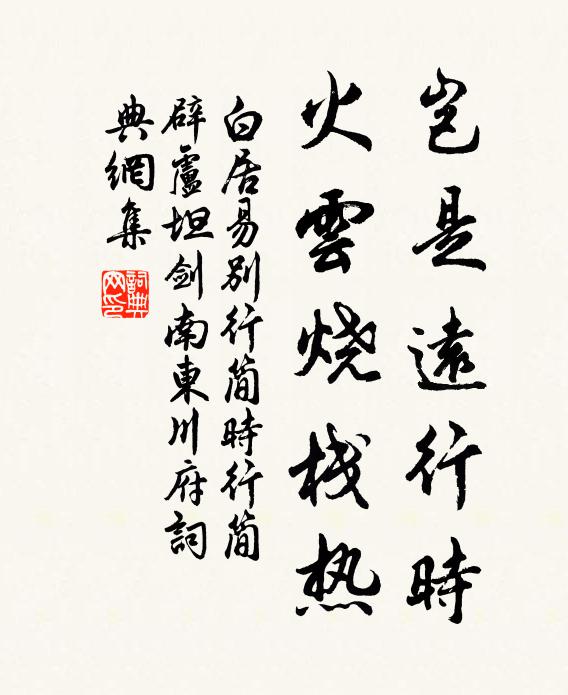 岂是遠行時
火雲烧栈热
白居易别行简時行简
辟盧坦剑南東川府詞
典網集
詞典
网印